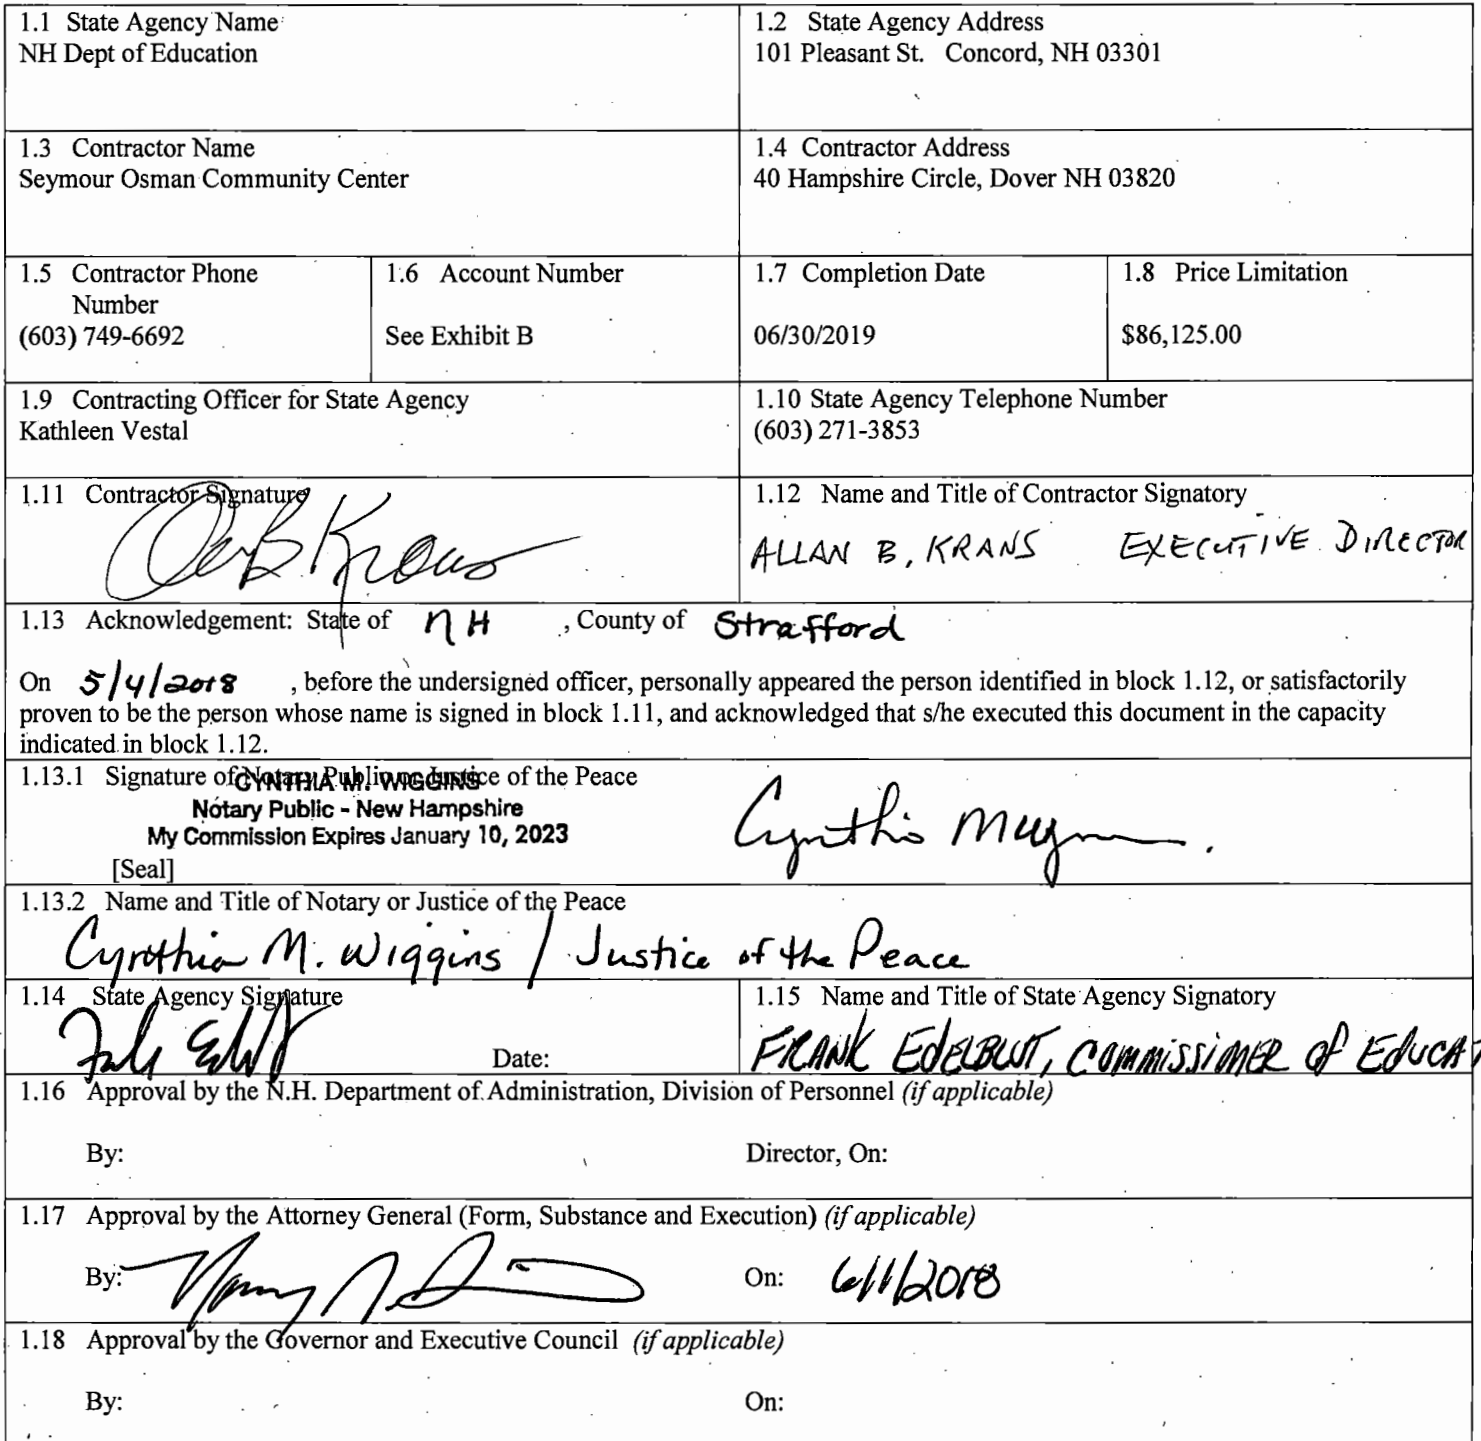 1.1 State Agency Name
NH Dept of Education
1.2 State Agency Address
101 Pleasant St. Concord, NH 03301
1.3 Contractor Name
Seymour Osman Community Center
1.4 Contractor Address
40 Hampshire Circle, Dover NH 03820
1.5 Contractor Phone
Number
(603) 749-6692
1.6 Account Number
See Exhibit B
1.7 Completion Date
06/30/2019
1.8 Price Limitation
$86,125.00
1.9 Contracting Officer for State Agency
Kathleen Vestal
1.10 State Agency Telephone Number
(603) 271-3853
1.11 Contractor Signature
1.12 Name and Title of Contractor Signatory
ALLAN B. KRANS EXECUTIVE DIRECTOR
1.13 Acknowledgement: State of NH , County of Strafford
On 5/4/2018 , before the undersigned officer, personally appeared the person identified in block 1.12, or satisfactorily
proven to be the person whose name is signed in block 1.11, and acknowledged that s/he executed this document in the capacity
indicated in block 1.12.
1.13.1 Signature of Notary Public or Justice of the Peace
CYNTHIA M. WIGGINS
Notary Public - New Hampshire
My Commission Expires January 10, 2023
[Seal]
1.13.2 Name and Title of Notary or Justice of the Peace
Cynthia M. Wiggins / Justice of the Peace
1.14 State Agency Signature
Date:
1.15 Name and Title of State Agency Signatory
FRANK EDELBLUT, COMMISSIONER of EDUCAT
1.16 Approval by the N.H. Department of Administration, Division of Personnel (if applicable)
By: Director, On:
1.17 Approval by the Attorney General (Form, Substance and Execution) (if applicable)
By: On: 6/11/2018
1.18 Approval by the Governor and Executive Council (if applicable)
By: On: